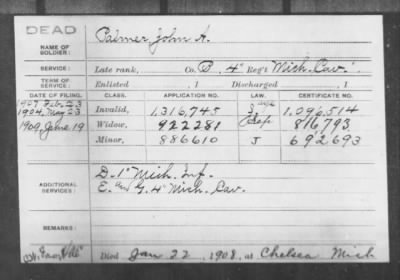 DEAD
NAME OF SOLDIER: Palmer, John A.
SERVICE: Late rank, Co. B, 4" Reg't Mich. Cav.
TERM OF SERVICE: Enlisted , 1 Discharged , 1
DATE OF FILING. CLASS. APPLICATION NO. LAW. CERTIFICATE NO.
1907 Feb. 23 Invalid, 1,316,745 1,096,514
1904, May 23 Widow, 922281 816,793
1909, June 19 Minor, 886610 J 692693
ADDITIONAL SERVICES: D. 1" Mich. Inf.
E. and G. 4" Mich. Cav.
REMARKS:
Died Jan 22, 1908, at Chelsea Mich